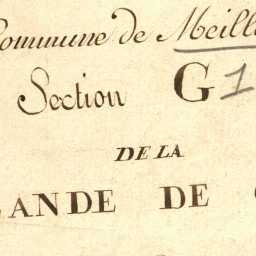 Commune de Meill
Section G1
DE LA
LANDE DE